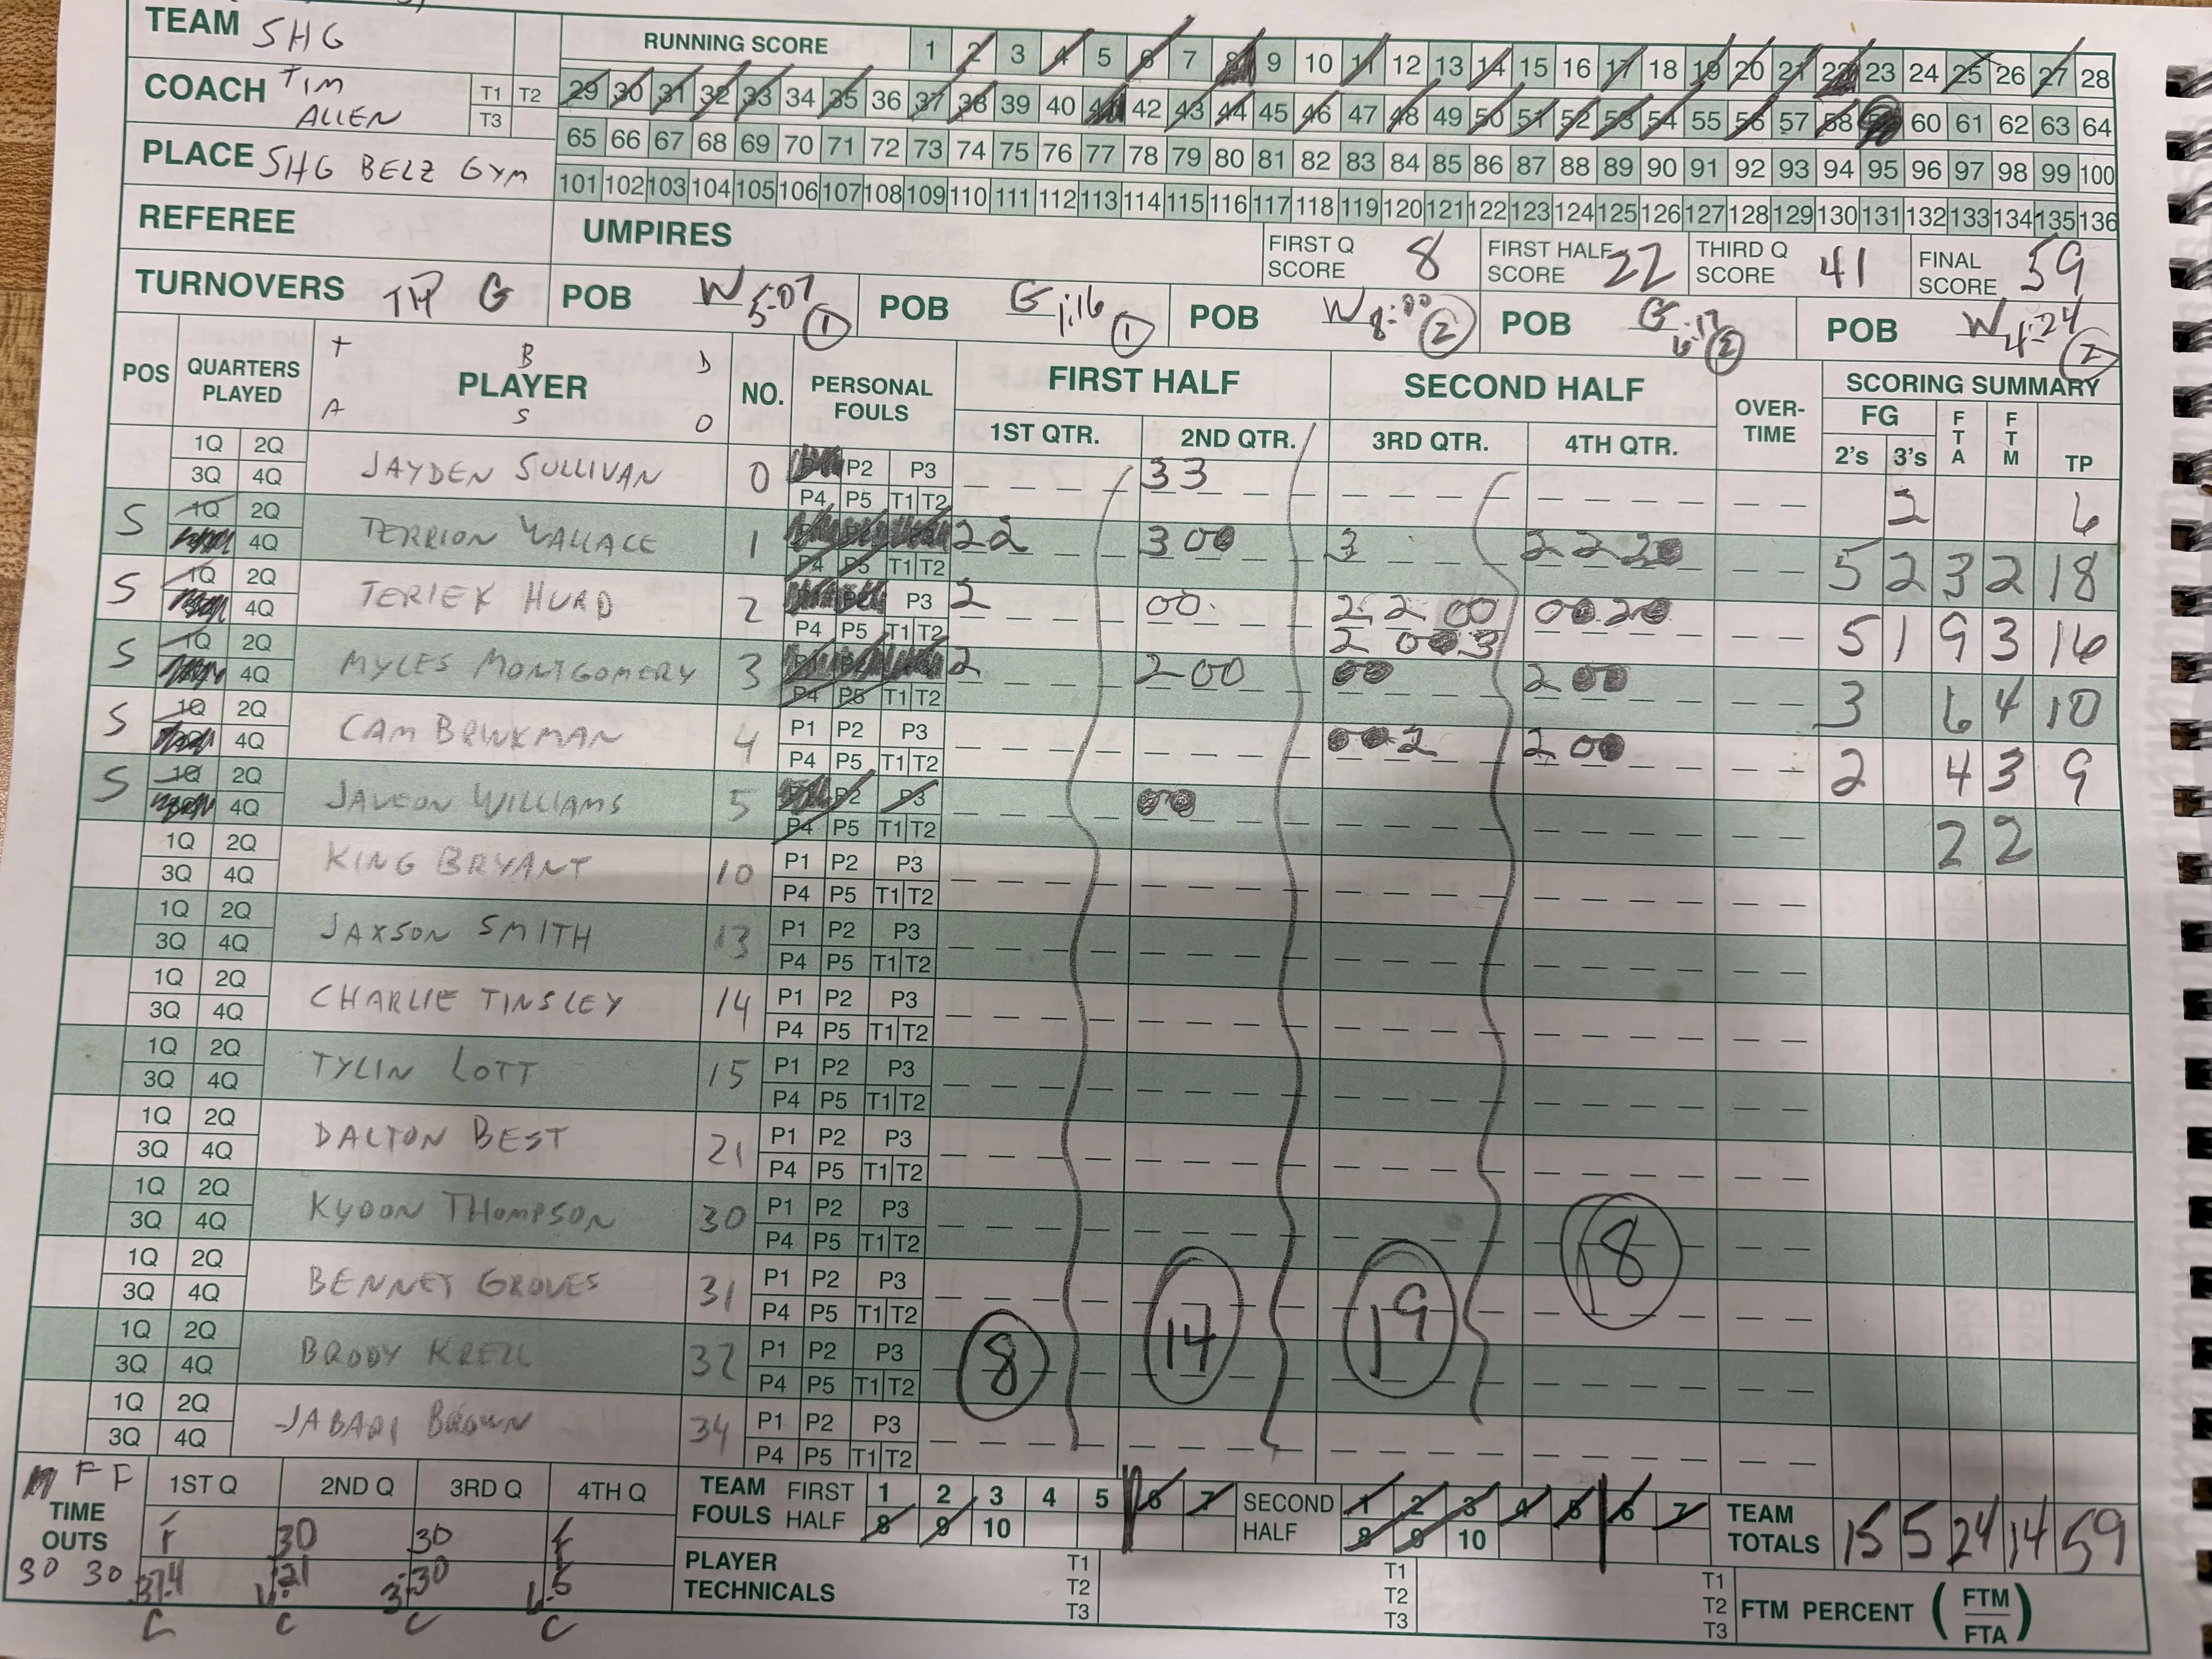 TEAM SHG
RUNNING SCORE 1 2 3 4 5 6 7 8 9 10 11 12 13 14 15 16 17 18 19 20 21 22 23 24 25 26 27 28
COACH TIM ALLEN T1 T2 T3
29 30 31 32 33 34 35 36 37 38 39 40 41 42 43 44 45 46 47 48 49 50 51 52 53 54 55 56 57 58 59 60 61 62 63 64
65 66 67 68 69 70 71 72 73 74 75 76 77 78 79 80 81 82 83 84 85 86 87 88 89 90 91 92 93 94 95 96 97 98 99 100
PLACE SHG BELZ GYM
101 102 103 104 105 106 107 108 109 110 111 112 113 114 115 116 117 118 119 120 121 122 123 124 125 126 127 128 129 130 131 132 133 134 135 136
REFEREE
UMPIRES
FIRST Q SCORE 8 FIRST HALF SCORE 22 THIRD Q SCORE 41 FINAL SCORE 59
TURNOVERS TIP G POB W 5:07 1 POB G 1:16 1 POB W 8:00 2 POB G 6:17 2 POB W 4:24 2
POS QUARTERS PLAYED PLAYER NO. PERSONAL FOULS FIRST HALF SECOND HALF OVER-TIME SCORING SUMMARY
T B D A S O
1ST QTR. 2ND QTR. 3RD QTR. 4TH QTR. FG 2's 3's FTA FTM TP
1Q 2Q 3Q 4Q JAYDEN SULLIVAN 0 P2 P3 P4 P5 T1 T2 33 2 6
S 1Q 2Q 4Q TERRION WALLACE 1 P4 P5 T1 T2 22 300 3 2220 5 2 3 2 18
S 1Q 2Q 4Q TERIEK HURD 2 P3 P4 P5 T1 T2 2 00 2 2 00 2 003 0020 5 1 9 3 16
S 1Q 2Q 4Q MYLES MONTGOMERY 3 P4 P5 T1 T2 2 200 00 200 3 6 4 10
S 1Q 2Q 4Q CAM BRINKMAN 4 P1 P2 P3 P4 P5 T1 T2 002 200 2 4 3 9
S 1Q 2Q 4Q JAVEON WILLIAMS 5 P2 P3 P4 P5 T1 T2 00 2 2
1Q 2Q 3Q 4Q KING BRYANT 10 P1 P2 P3 P4 P5 T1 T2
1Q 2Q 3Q 4Q JAXSON SMITH 13 P1 P2 P3 P4 P5 T1 T2
1Q 2Q 3Q 4Q CHARLIE TINSLEY 14 P1 P2 P3 P4 P5 T1 T2
1Q 2Q 3Q 4Q TYLIN LOTT 15 P1 P2 P3 P4 P5 T1 T2
1Q 2Q 3Q 4Q DALTON BEST 21 P1 P2 P3 P4 P5 T1 T2
1Q 2Q 3Q 4Q KYDON THOMPSON 30 P1 P2 P3 P4 P5 T1 T2
1Q 2Q 3Q 4Q BENNET GROVES 31 P1 P2 P3 P4 P5 T1 T2
1Q 2Q 3Q 4Q BRODY KRELL 32 P1 P2 P3 P4 P5 T1 T2
8 14 19 18
1Q 2Q 3Q 4Q JABARI BROWN 34 P1 P2 P3 P4 P5 T1 T2
F F TIME OUTS 30 30
1ST Q 2ND Q 3RD Q 4TH Q
F 30 30 F
C C C C
TEAM FOULS FIRST HALF 1 2 3 4 5 6 7 8 9 10 SECOND HALF 1 2 3 4 5 6 7 8 9 10 TEAM TOTALS 15 5 24 14 59
PLAYER TECHNICALS T1 T2 T3 T1 T2 T3 T1 T2 T3 FTM PERCENT (FTM/FTA)